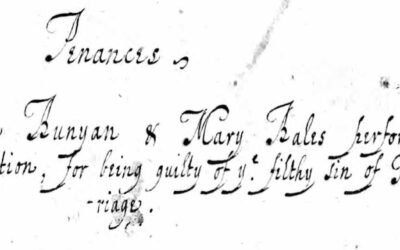 Penances
Bunyan & Mary Bales perfor
tion, for being guilty of yᵉ. filthy sin of
-riage.